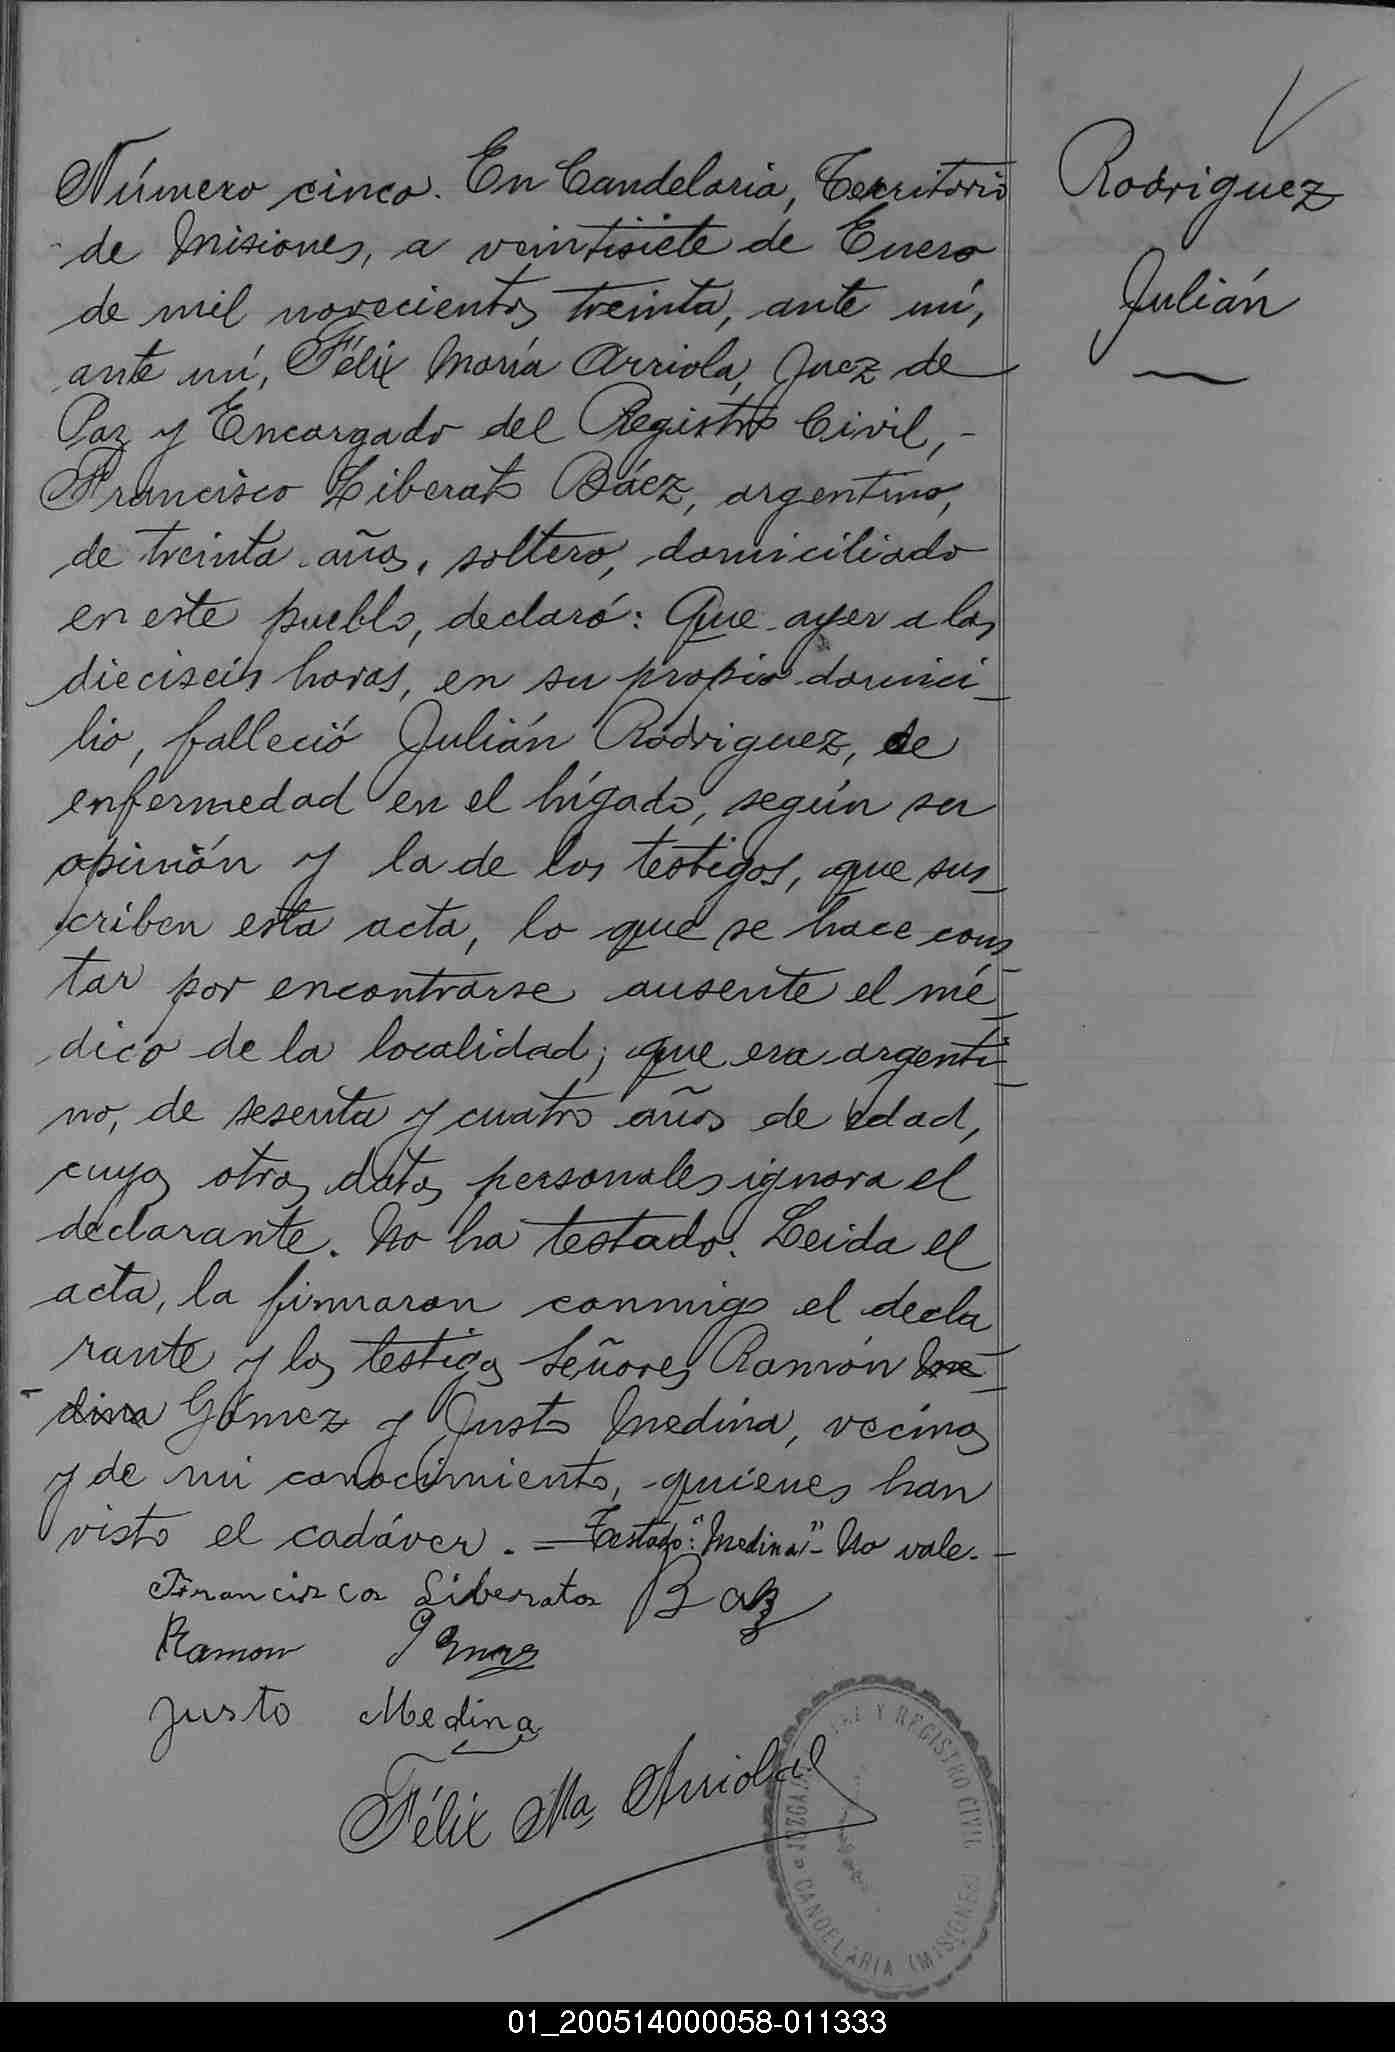 Número cinco. En Candelaria, Territorio
de Misiones, a veintisiete de Enero
de mil novecientos treinta, ante mí,
ante mí, Félix María Arriola, Juez de
Paz y Encargado del Registro Civil,-
Francisco Liberato Báez, argentino,
de treinta años, soltero, domiciliado
en este pueblo, declaró: Que ayer a las
dieciseis horas, en su propio domici-
lio, falleció Julián Rodriguez, de
enfermedad en el hígado, según su
opinión y la de los testigos, que sus-
criben esta acta, lo que se hace cons-
tar por encontrarse ausente el mé-
dico de la localidad; que era argenti-
no, de sesenta y cuatro años de edad,
cuyos otros datos personales ignora el
declarante. No ha testado. Leida el
acta, la firmaron conmigo el decla-
rante y los testigos Señores Ramón Me-
dina Gómez y Justo Medina, vecinos
y de mi conocimiento, quienes han
visto el cadáver. = Testado: "Medina" - No vale. -
Francisco Liberato Baz
Ramon
Justo Medina
Félix Ma Arriola
Y REGISTRO CIVIL
CANDELARIA (MISIONES)
Rodriguez
Julián
01_200514000058-011333